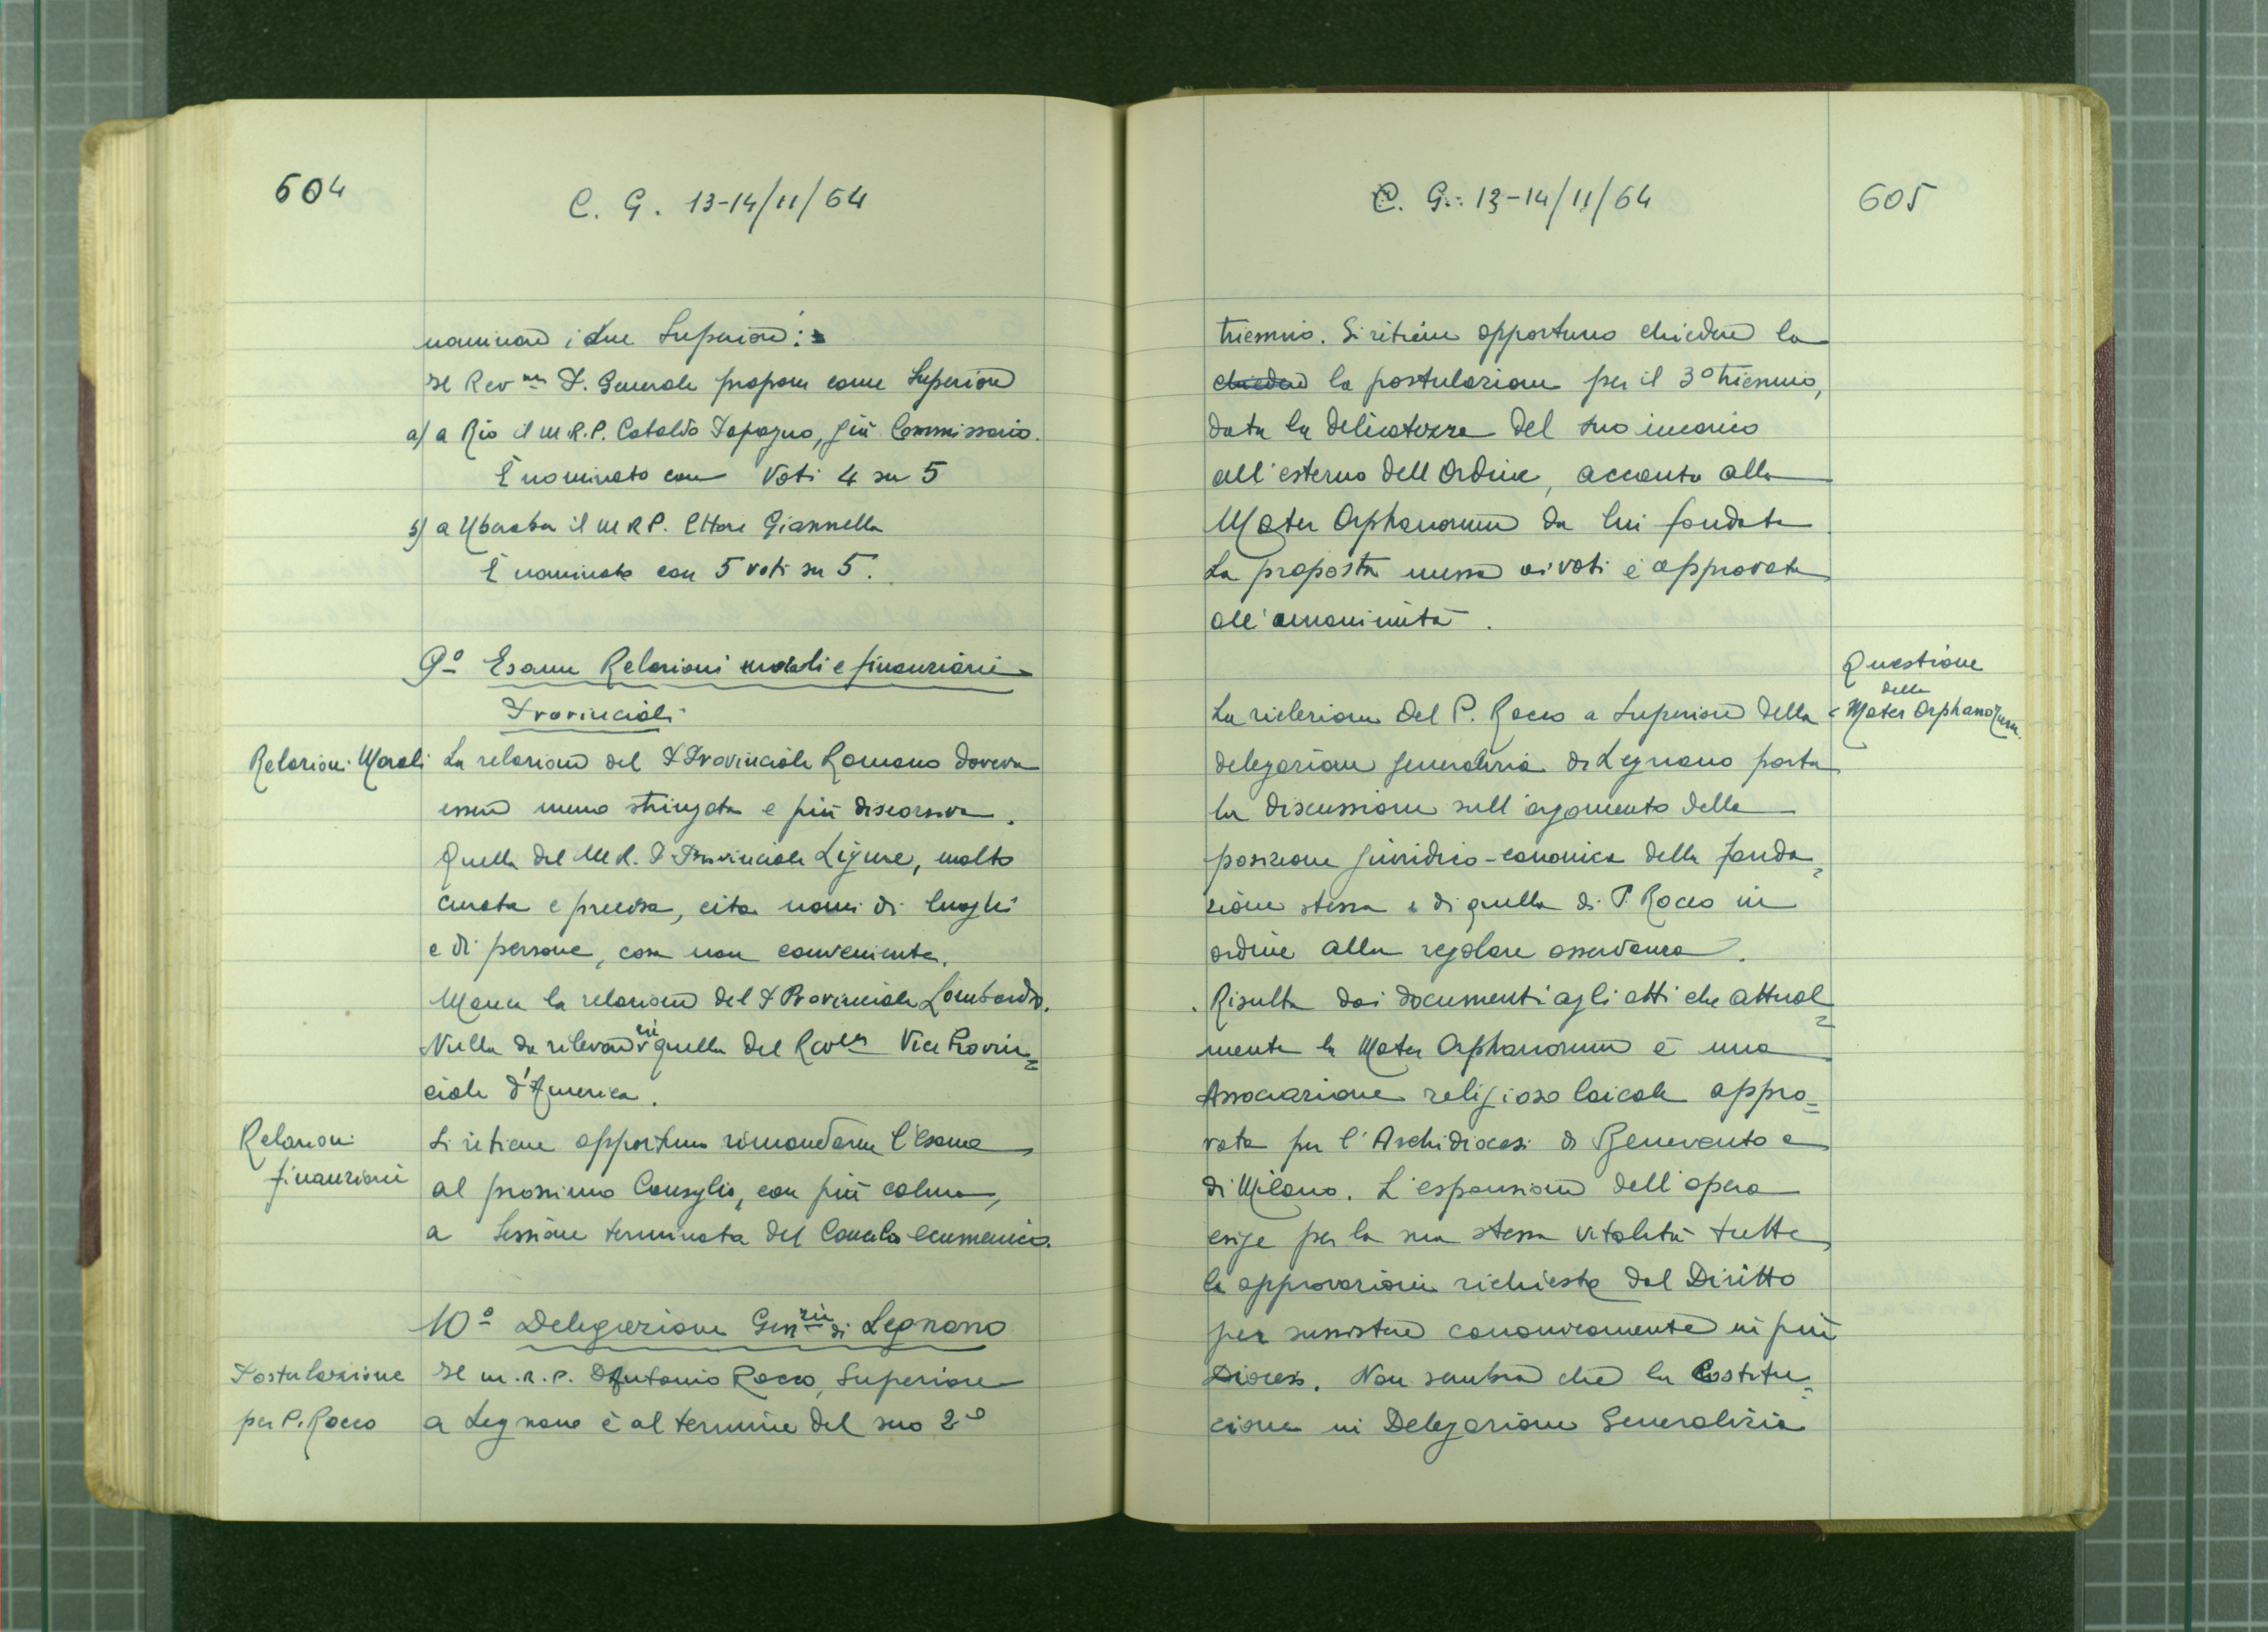 604
C. G. 13-14/11/64
nominare i due Superiori:
Il Rev.mo P. Generale propone come Superiore
a) a Rio il M.R.P. Cataldo Papagno, già Commissario.
È nominato con Voti 4 su 5
b) a Uberaba il M R P. Ettore Giannella
È nominato con 5 voti su 5.
9º Esame Relazioni morali e finanziarie
Provinciali
Relazioni Morali
La relazione del P Provinciale Romano doveva
essere meno stringata e più discorsiva.
Quella del M R. P Provinciale Ligure, molto
curata e precisa, cita nomi di luoghi
e di persone, cosa non conveniente.
Manca la relazione del P Provinciale Lombardo.
Nulla da rilevare in quella del Rev.mo Vice Provin=
ciale d'America.
Relazioni
finanziarie
Si ritiene opportuno rimandarne l'esame
al prossimo Consiglio, con più calma,
a Sessione terminata del Concilio ecumenico.
10º Delegazione Gen.zia di Legnano
Postulazione
per P. Rocco
Il m.r.p. D Antonio Rocco, Superiore
a Legnano è al termine del suo 2º
C. G. 13-14/11/64
605
triennio. Si ritiene opportuno chiedere la
chiedere la postulazione per il 3º triennio,
data la delicatezza del suo incarico
all'esterno dell'Ordine, accanto alla
Mater Orphanorum da lui fondata
La proposta messa ai voti è approvata
all'unanimità.
Questione
della
Mater Orphanorum.
La rielezione del P. Rocco a Superiore della
delegazione generalizia di Legnano porta
la discussione sull'argomento della
posizione giuridico-canonica della fonda=
zione stessa e di quella di P. Rocco in
ordine alla regolare osservanza.
Risulta dai documenti agli atti che attual=
mente la Mater Orphanorum è una
Associazione religioso laicale appro=
vata per l'Archidiocesi di Benevento e
di Milano. L'espansione dell'opera
esige per la sua stessa vitalità tutte
le approvazioni richieste dal Diritto
per sussistere canonicamente in più
Diocesi. Non sembra che la Costitu=
zione in Delegazione Generalizia